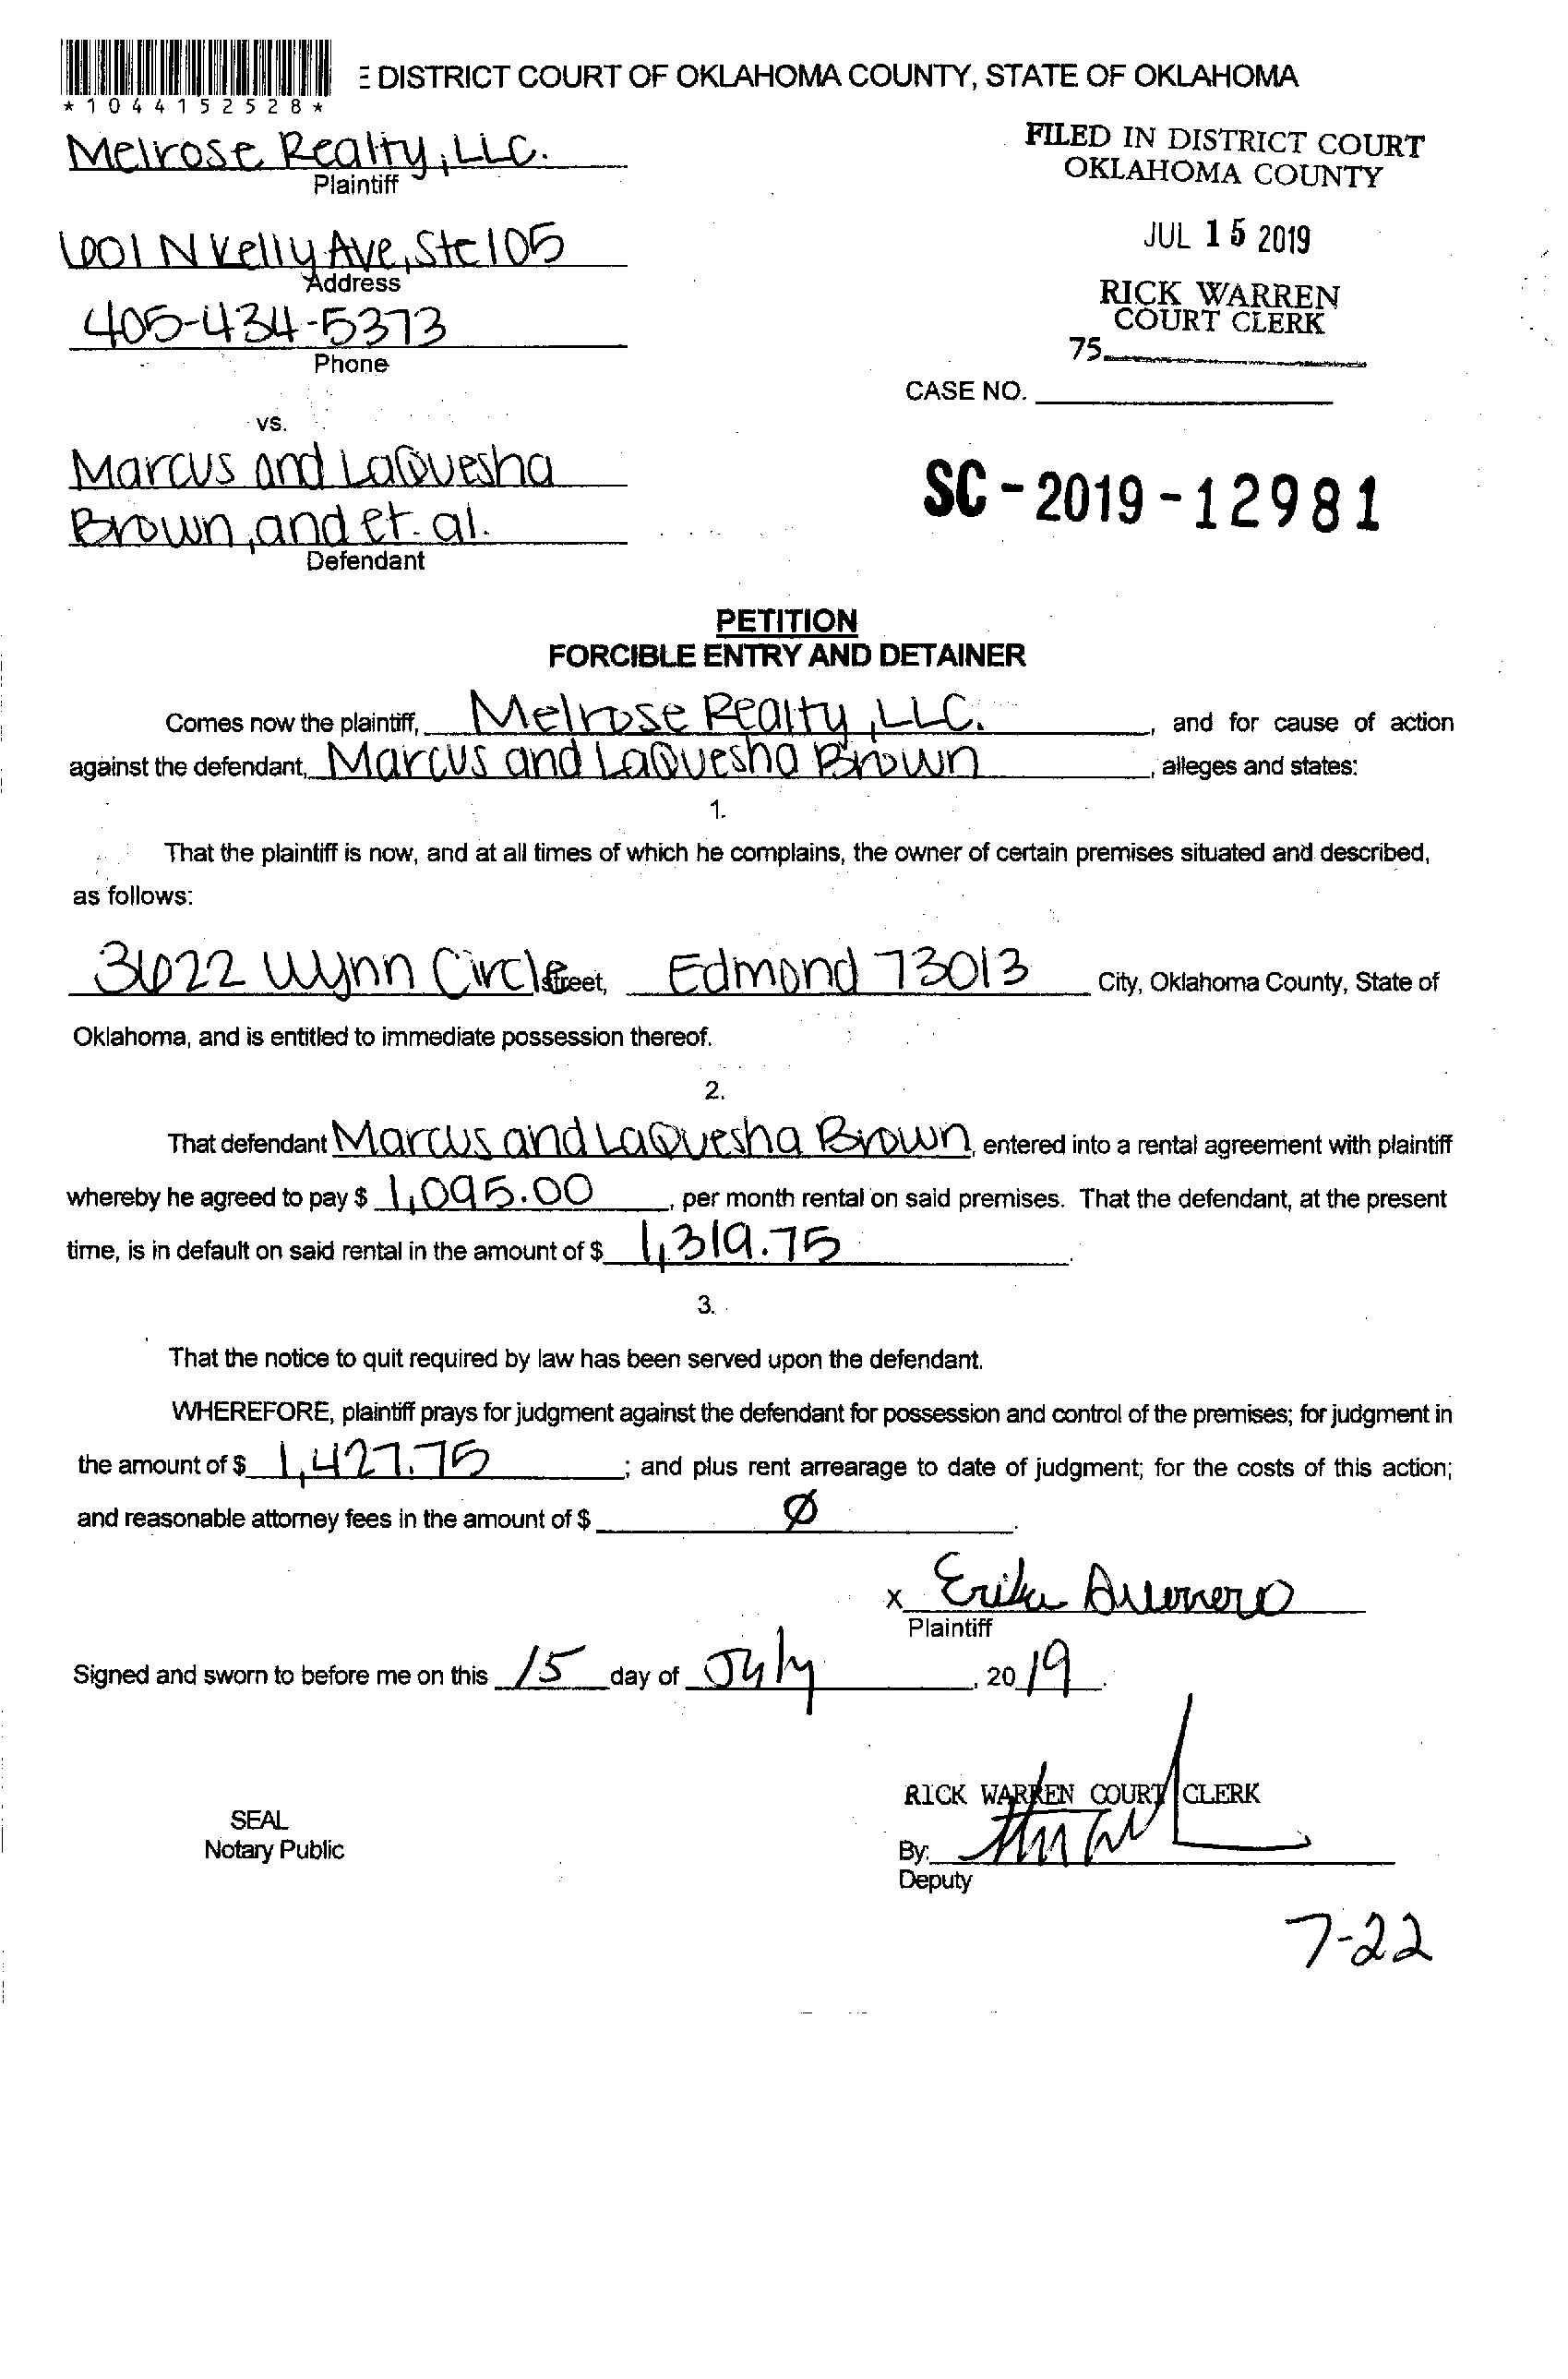 DISTRICT COURT OF OKLAHOMA COUNTY, STATE OF OKLAHOMA
*1044152528*
Melrose Realty, LLC.
Plaintiff
FILED IN DISTRICT COURT
OKLAHOMA COUNTY
1601 N Kelly Ave, Ste 105
Address
JUL 15 2019
405-434-5373
Phone
RICK WARREN
COURT CLERK
75
CASE NO.
vs.
Marcus and LaQuesha
Brown, and et. al.
Defendant
SC-2019-12981
PETITION
FORCIBLE ENTRY AND DETAINER
Comes now the plaintiff, Melrose Realty, LLC. , and for cause of action
against the defendant, Marcus and LaQuesha Brown , alleges and states:
1.
That the plaintiff is now, and at all times of which he complains, the owner of certain premises situated and described,
as follows:
3622 Wynn Circle street, Edmond 73013 City, Oklahoma County, State of
Oklahoma, and is entitled to immediate possession thereof.
2.
That defendant Marcus and LaQuesha Brown, entered into a rental agreement with plaintiff
whereby he agreed to pay $ 1,095.00 , per month rental on said premises. That the defendant, at the present
time, is in default on said rental in the amount of $ 1,319.75 .
3.
That the notice to quit required by law has been served upon the defendant.
WHEREFORE, plaintiff prays for judgment against the defendant for possession and control of the premises; for judgment in
the amount of $ 1,427.75 ; and plus rent arrearage to date of judgment; for the costs of this action;
and reasonable attorney fees in the amount of $ Ø .
x Erika
Plaintiff
Signed and sworn to before me on this 15 day of July , 20 19 .
RICK WARREN COURT CLERK
SEAL
Notary Public
By:
Deputy
7-22